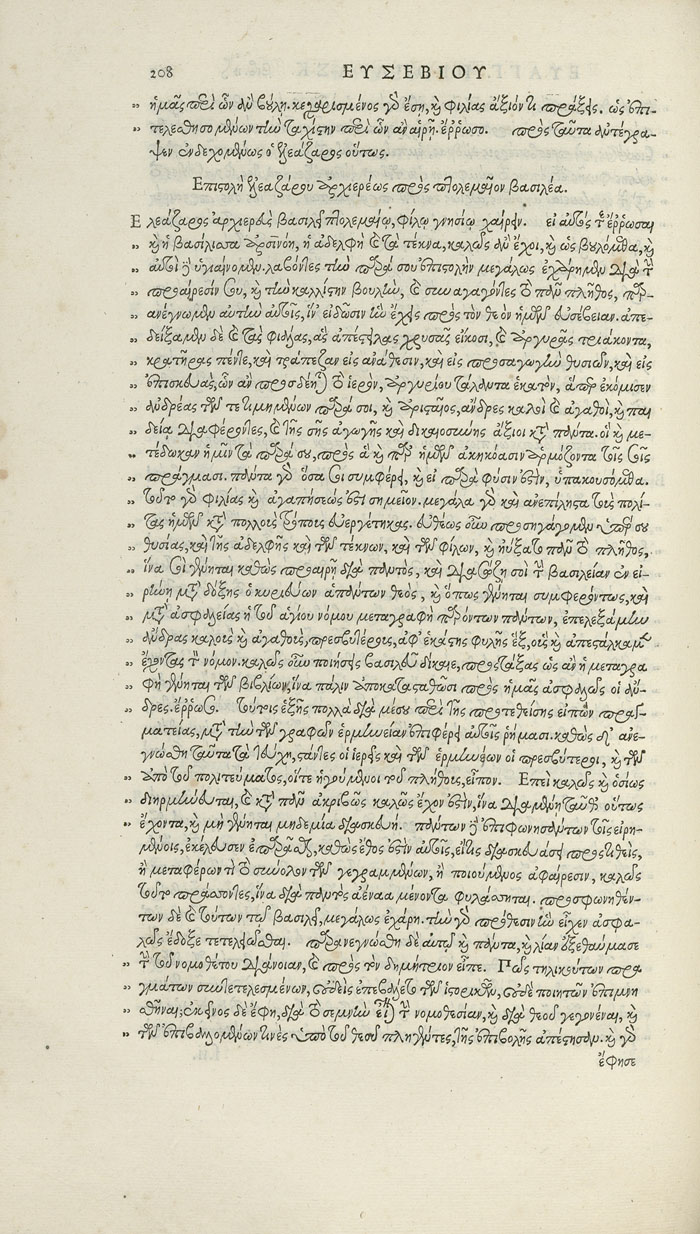 208 ΕΥΣΕΒΙΟΥ
” ἡμᾶς περὶ ὧν ἂν βούλῃ. κεχαρισμένος γὰρ ἔσῃ, καὶ φιλίας ἄξιόν τι πράξεις. ὡς ἐπι-
” τελεσθησομένων τὴν ταχίστην περὶ ὧν ἂν αἱρῇ. ἔρρωσο. πρὸς ταῦτα ἀντέγρα-
ψεν ἐνδεχομένως ὁ Ἐλεάζαρος οὕτως.
Επιστολὴ Ἐλεαζάρου ἀρχιερέως πρὸς πτολεμαῖον βασιλέα.
Ελεάζαρος ἀρχιερεὺς βασιλεῖ πτολεμαίῳ, φίλῳ γνησίῳ χαίρειν. εἰ αὐτός τε ἔρρωσαι
” καὶ ἡ βασίλισσα ἀρσινόη, ἡ ἀδελφὴ καὶ τὰ τέκνα, καλῶς ἂν ἔχοι, καὶ ὡς βουλόμεθα, καὶ
” αὐτοὶ δὲ ὑγιαίνομεν. λαβόντες τὴν παρὰ σου ἐπιστολὴν μεγάλως ἐχάρημεν διὰ τὴν
” προαίρεσίν σου, καὶ τὴν καλλίστην βουλὴν, καὶ συναγαγόντες τὸ πᾶν πλῆθος, παρ-
” ανέγνωμεν αὐτὴν αὐτοῖς, ἵν’ εἰδῶσιν ἣν ἔχεις πρὸς τὸν θεὸν ἡμῶν εὐσέβειαν. ἀπε-
” δείξαμεν δὲ καὶ τὰς φιάλας, ἃς ἀπέστειλας χρυσᾶς εἴκοσι, καὶ ἀργυρᾶς τριάκοντα,
” κρατῆρας πέντε, καὶ τράπεζαν εἰς ἀνάθεσιν, καὶ εἰς προσαγωγὴν θυσιῶν, καὶ εἰς
” ἐπισκευὰς, ὧν ἂν προσδέηται τὸ ἱερὸν, ἀργυρίου τάλαντα ἑκατὸν, ἅπερ ἐκόμισεν
” ἀνδρέας τῶν τετιμημένων παρά σοι, καὶ ἀρισταῖος, ἄνδρες καλοὶ καὶ ἀγαθοὶ, καὶ παι
” δείᾳ διαφέροντες, καὶ τῆς σῆς ἀγωγῆς καὶ δικαιοσύνης ἄξιοι κατὰ πάντα. οἳ καὶ με-
” τέδωκαν ἡμῖν τὰ παρά σου, πρὸς ἃ καὶ παρ’ ἡμῶν ἀκηκόασιν ἁρμόζοντα τοῖς σοῖς
” πράγμασι. πάντα γὰρ ὅσα σοι συμφέρει, καὶ εἰ παρὰ φύσιν ἐστὶν, ὑπακουσόμεθα.
” τοῦτο γὰρ φιλίας καὶ ἀγαπήσεώς ἐστι σημεῖον. μεγάλα γὰρ καὶ ἀνεπίληστα τοὺς πολί-
” τας ἡμῶν κατὰ πολλοὺς τρόπους εὐεργέτηκας. εὐθέως οὖν προσηγάγομεν ὑπὲρ σου
” θυσίας, καὶ τῆς ἀδελφῆς καὶ τῶν τέκνων, καὶ τῶν φίλων, καὶ ηὔξατο πᾶν τὸ πλῆθος,
” ἵνα σοι γένηται καθὼς προαιρῇ διὰ παντὸς, καὶ διασώζῃ σοι τὴν βασιλείαν ἐν εἰ-
” ρήνῃ μετὰ δόξης ὁ κυριεύων ἁπάντων θεὸς, καὶ ὅπως γένηται συμφερόντως, καὶ
” μετὰ ἀσφαλείας ἡ τοῦ ἁγίου νόμου μεταγραφὴ παρόντων πάντων, ἐπελεξάμην
” ἄνδρας καλοὺς καὶ ἀγαθοὺς, πρεσβυτέρους, ἀφ’ ἑκάστης φυλῆς ἓξ, οὓς καὶ ἀπεστάλκαμεν
” ἔχοντας τὸν νόμον. καλῶς οὖν ποιήσεις βασιλεῦ δίκαιε, προστάξας ὡς ἂν ἡ μεταγρα
” φὴ γένηται τῶν βιβλίων, ἵνα πάλιν ἀποκατασταθῶσι πρὸς ἡμᾶς ἀσφαλῶς οἱ ἄν-
” δρες. ἔρρωσο. τούτοις ἑξῆς πολλὰ διὰ μέσου περὶ τῆς προτεθείσης εἰπὼν πραγ-
ματείας, μετὰ τὴν τῶν γραφῶν ἑρμηνείαν ἐπιφέρει αὐτοῖς ῥήμασι. καθὼς δ’ ἀνε-
” γνώσθη ταῦτα τὰ τεύχη, στάντες οἱ ἱερεῖς καὶ τῶν ἑρμηνέων οἱ πρεσβύτεροι, καὶ τῶν
” ἀπὸ τοῦ πολιτεύματος, οἵτε ἡγούμενοι τοῦ πλήθους, εἶπον. Επεὶ καλῶς καὶ ὁσίως
” διηρμήνευται, καὶ κατὰ πᾶν ἀκριβῶς καλῶς ἔχον ἐστὶν, ἵνα διαμένῃ ταῦθ’ οὕτως
” ἔχοντα, καὶ μὴ γένηται μηδεμία διασκευή. πάντων δὲ ἐπιφωνησάντων τοῖς εἰρη-
μένοις, ἐκέλευσεν ἐπαρᾶσθαι, καθὼς ἔθος ἐστὶν αὐτοῖς, εἴ τις διασκευάσει προστιθεὶς,
ἢ μεταφέρων τι τὸ σύνολον τῶν γεγραμμένων, ἢ ποιούμενος ἀφαίρεσιν, καλῶς
τοῦτο πράσσοντες, ἵνα διὰ παντὸς ἀέναα μένοντα φυλάσσηται. προσφωνηθέν-
των δὲ καὶ τούτων τῷ βασιλεῖ, μεγάλως ἐχάρη. τὴν γὰρ πρόθεσιν ἣν εἶχεν ἀσφα-
λῶς ἔδοξε τετελειῶσθαι. παρανεγνώσθη δὲ αὐτῷ καὶ πάντα, καὶ λίαν ἐξεθαύμασε
” τὴν τοῦ νομοθέτου διάνοιαν, καὶ πρὸς τὸν δημήτριον εἶπε. Πῶς τηλικούτων πρα
” γμάτων συντετελεσμένων, οὐδεὶς ἐπεβάλετο τῶν ἱστορικῶν, οὐδὲ ποιητῶν ἐπιμνη
” σθῆναι; ἐκεῖνος δὲ ἔφη, διὰ τὸ σεμνὴν εἶναι τὴν νομοθεσίαν, καὶ διὰ θεοῦ γεγονέναι, καὶ
” τῶν ἐπιβαλομένων τινὲς ὑπὸ τοῦ θεοῦ πληγέντες, τῆς ἐπιβολῆς ἀπέστησαν. καὶ γὰρ
ἔφησε